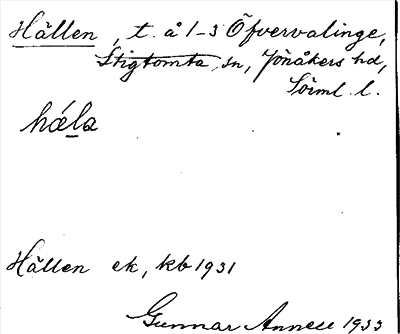 Hällen, t. å 1-3 Öfvervalinge,
Stigtomta sn, Jönåkers hd,
Söiml. l.
hǽla
Hällen ek, kb 1931
Gunnar Annell 1933